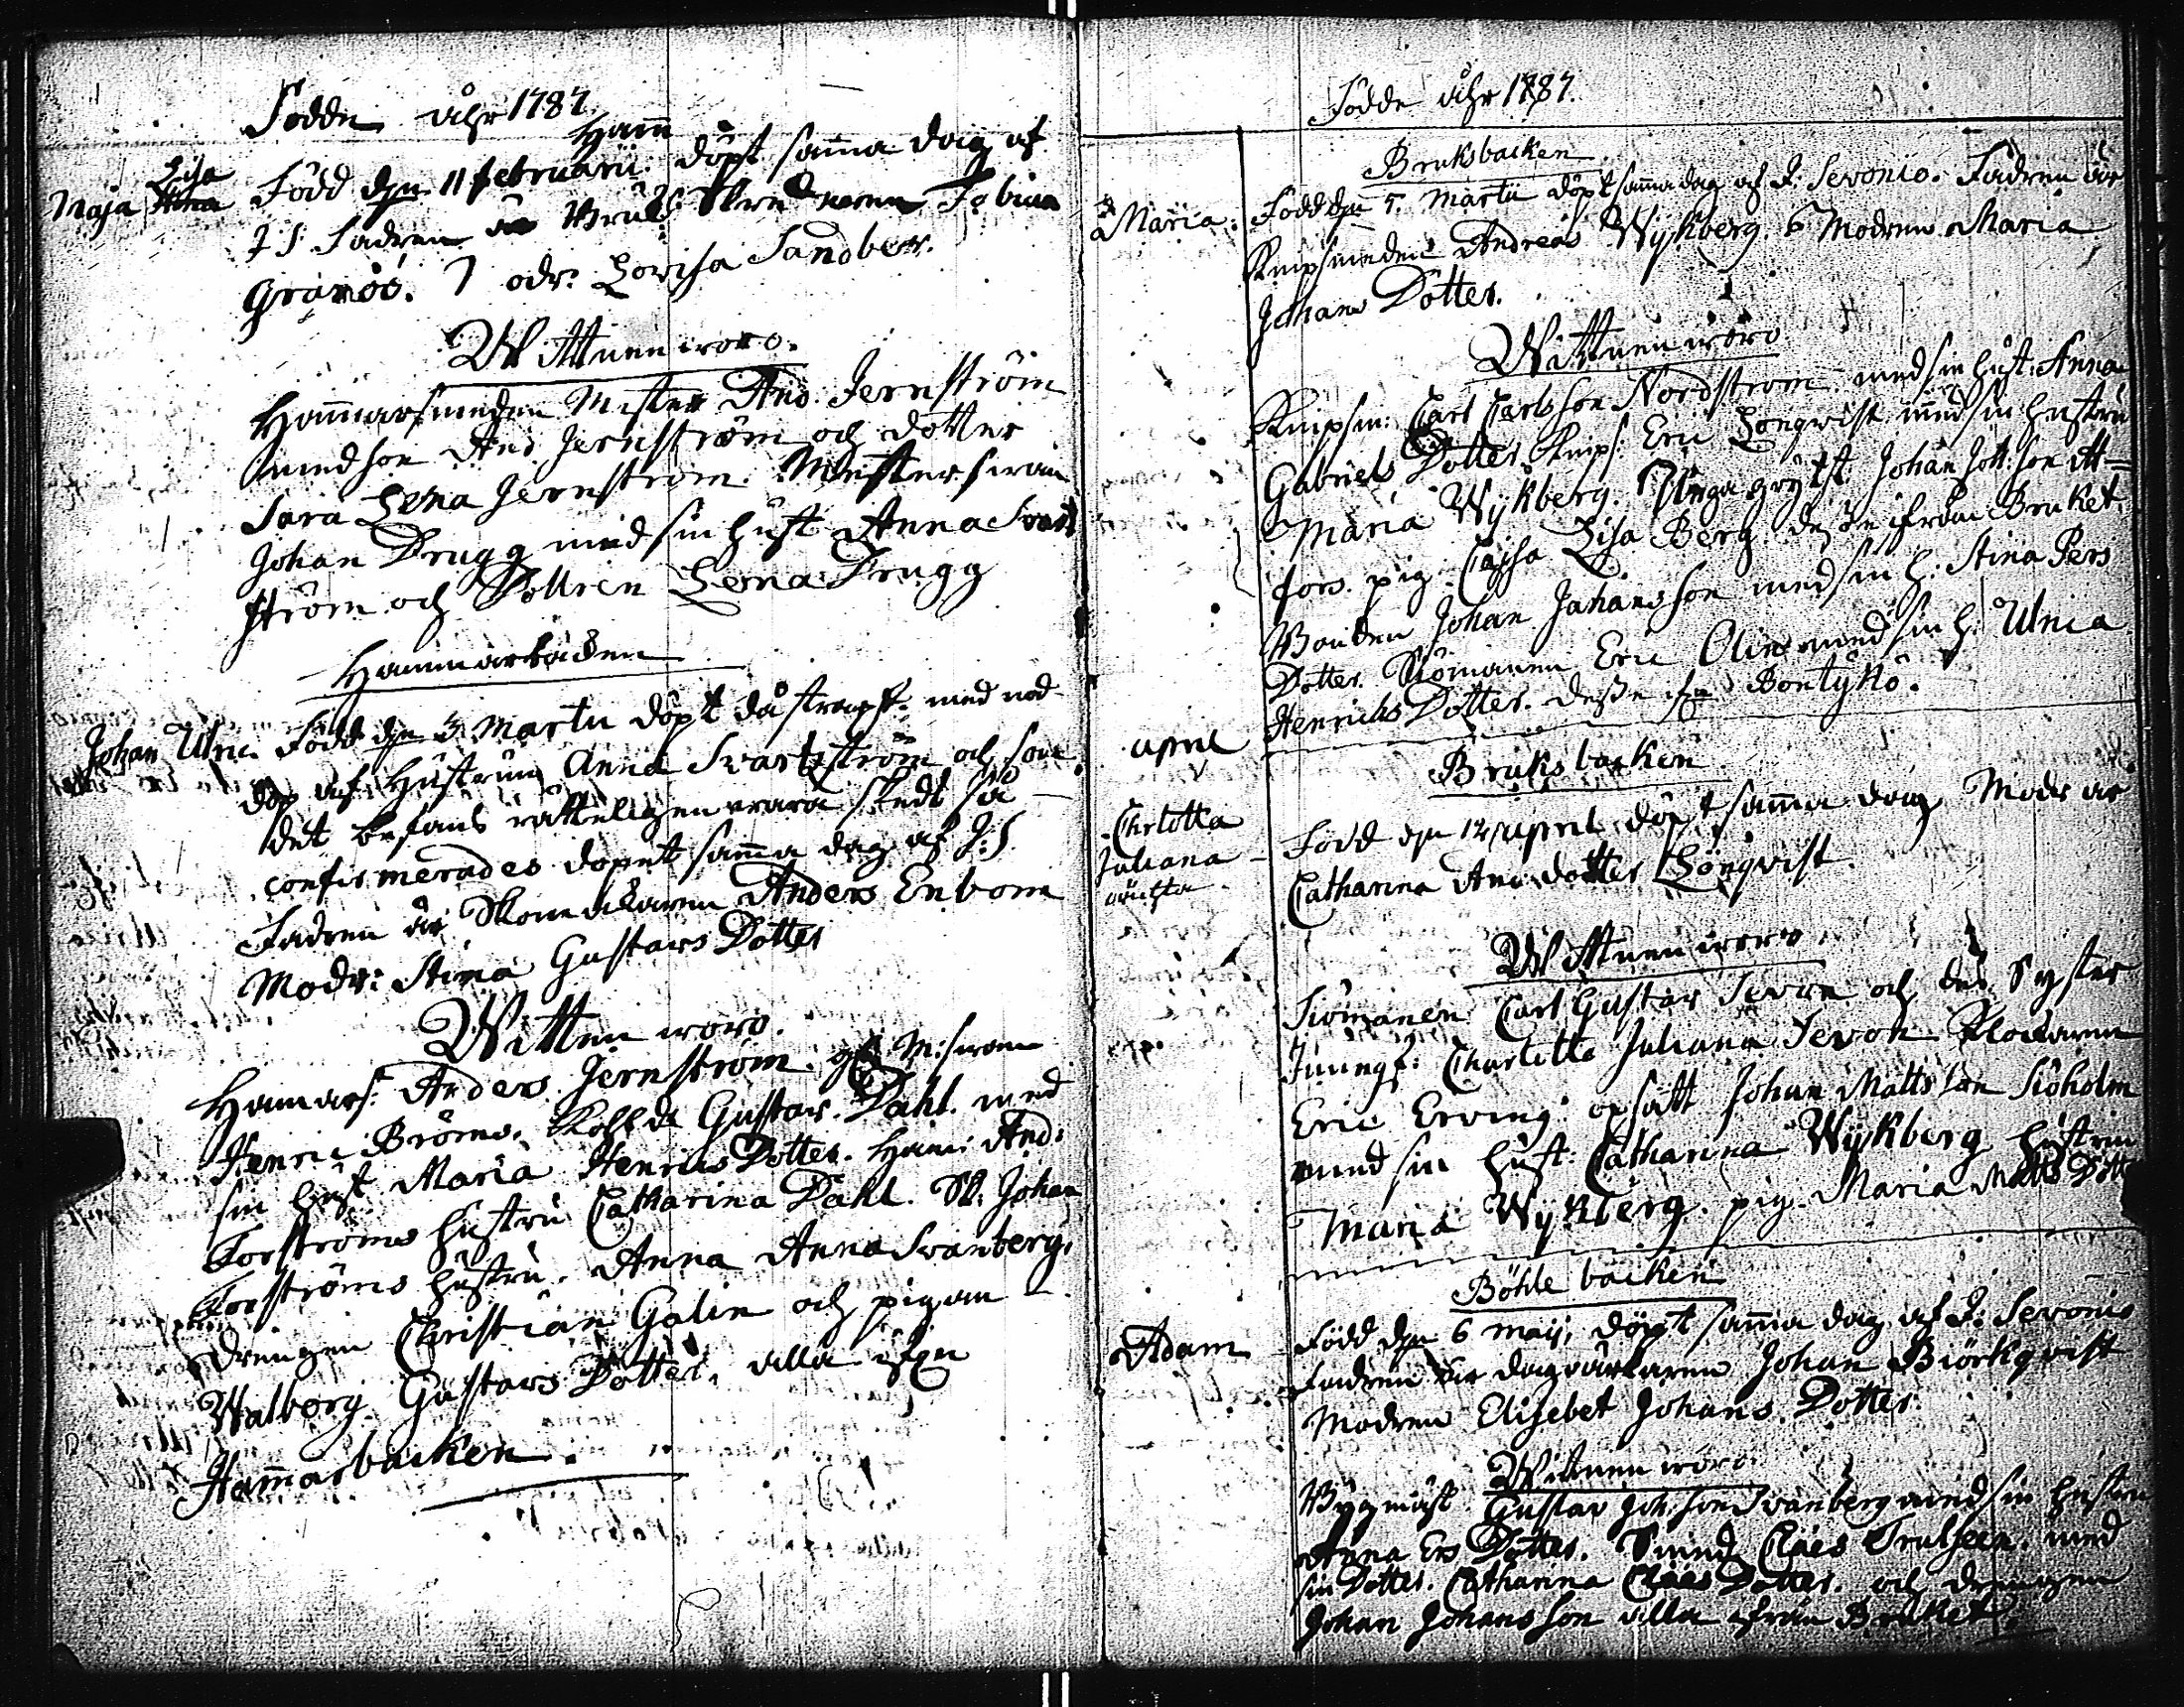 Födde åhr 1787.
Ham
Lisa
Maja Stina
Född den 11 februarii döpt samma dag af
J S. Fadren är Bruks Skredaren Tobias
Granöö. Modr: Lovisa Sandber.
Wittnen woro.
Hammarsmeden Mester And: Jernström
med son And Jernström och dotter
Sara Lena Jernström. Mestersven
Johan Trugg med sin hust Anna Svart
ström och Dottren Lena Trugg
Hammarbacken
Johan Ulric. Född den 3 Martii döpt då strax med nöd
döp af Hustrun Anna Svartström och som
det befans rätteligen vara skedt så
confirmerades dopet samma dag af J: S.
Fadren är Skomakaren Anders Enbom
Modr: Stina Gustavs Dotter
Witten woro.
Hamars: Anders Jernström. M:sven
Henric Bröms. Gustav Dahl. med
sin hust Maria Henrics Dotter. Ham: And:
Forströms hustru Catharina Dahl. Johan
Forströms hustru. Anna Anna Svanberg.
drengen Christian Galin och pigan
Walborg Gustavs Dotter. alla ifrån
Hamarbacken.
Födde åhr 1787.
Bruksbacken
Maria. Född den 5. Martii döpt samma dag af J: Sevonio. Fadren är
Knipsmeden Andreas Wykberg. Modren Maria
Johans Dotter.
Wittnen woro
Knipsm: Carl Carlsson Nordström med sin hust: Anna
Gabriels Dotter. Knips: Eric Lönqvist med sin hustru
Maria Wykberg. Johan
fors. pig: Cajsa Lisa Berg. desse ifrån Bruket.
Bonden Johan Johansson med sin h: Stina Pers
Dotter. Siömannen Eric Olin med sin h: Ulrica
Henrichs Dotter. desse ifrån
april
Bruksbacken
Chrlotta
Juliana
oächta
Född den 12 april döpt samma dag Modr är
Catharina And: dotter Lönqvist.
Wittnen woro.
Siömanen Carl Gustav Sevon och des Syster
Jungf: Charlotta Juliana Sevon Klockaren
Eric Erving. Johan Mattsson Siöholm
med sin hust: Catharina Wykberg hustrun
Maria Wykberg. pig. Maria Matts Dott
Böhle backen
Adam Född den 6 maij, döpt samma dag af J: Sevonio
Fadren är dagvärkaren Johan Biörkqvist
Modren Elisebet Johans Dotter
Wittnen woro.
Bygmäst Gustav Joh:son Svanberg med sin hustru
Anna Ers Dotter. Smed Claes med
sin Dotter. Catharina Claes Dotter. och drengen
Johan Johansson alla ifrån Bruket.